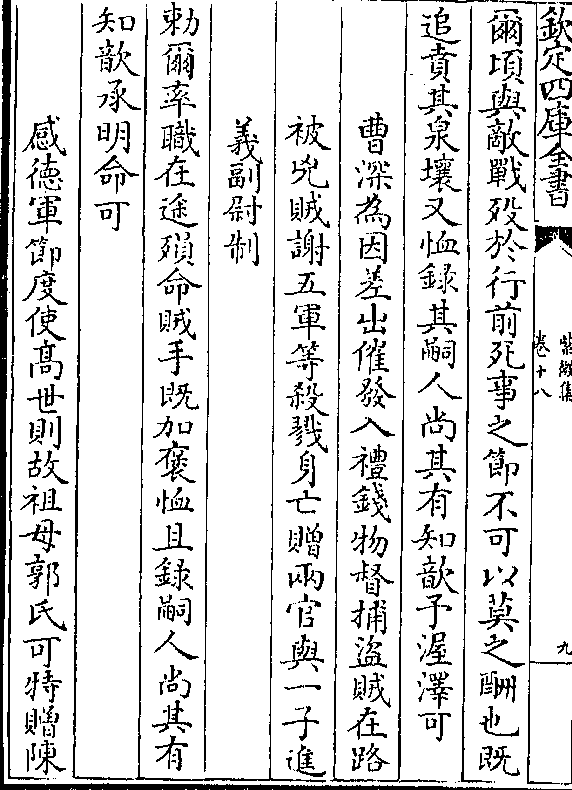 欽定四庫全書
紫微集
卷十八
九
爾頃與敵戰歿於行前死事之節不可以莫之酬也既
追賁其泉壤又恤錄其嗣人尚其有知歆予渥澤可
曹深為因差出催發入禮錢物督捕盜賊在路
被兇賊謝五軍等殺戮身亡贈兩官與一子進
義副尉制
勅爾率職在途殞命賊手既加褒恤且錄嗣人尚其有
知歆承明命可
感德軍節度使髙世則故祖母郭氏可特贈陳